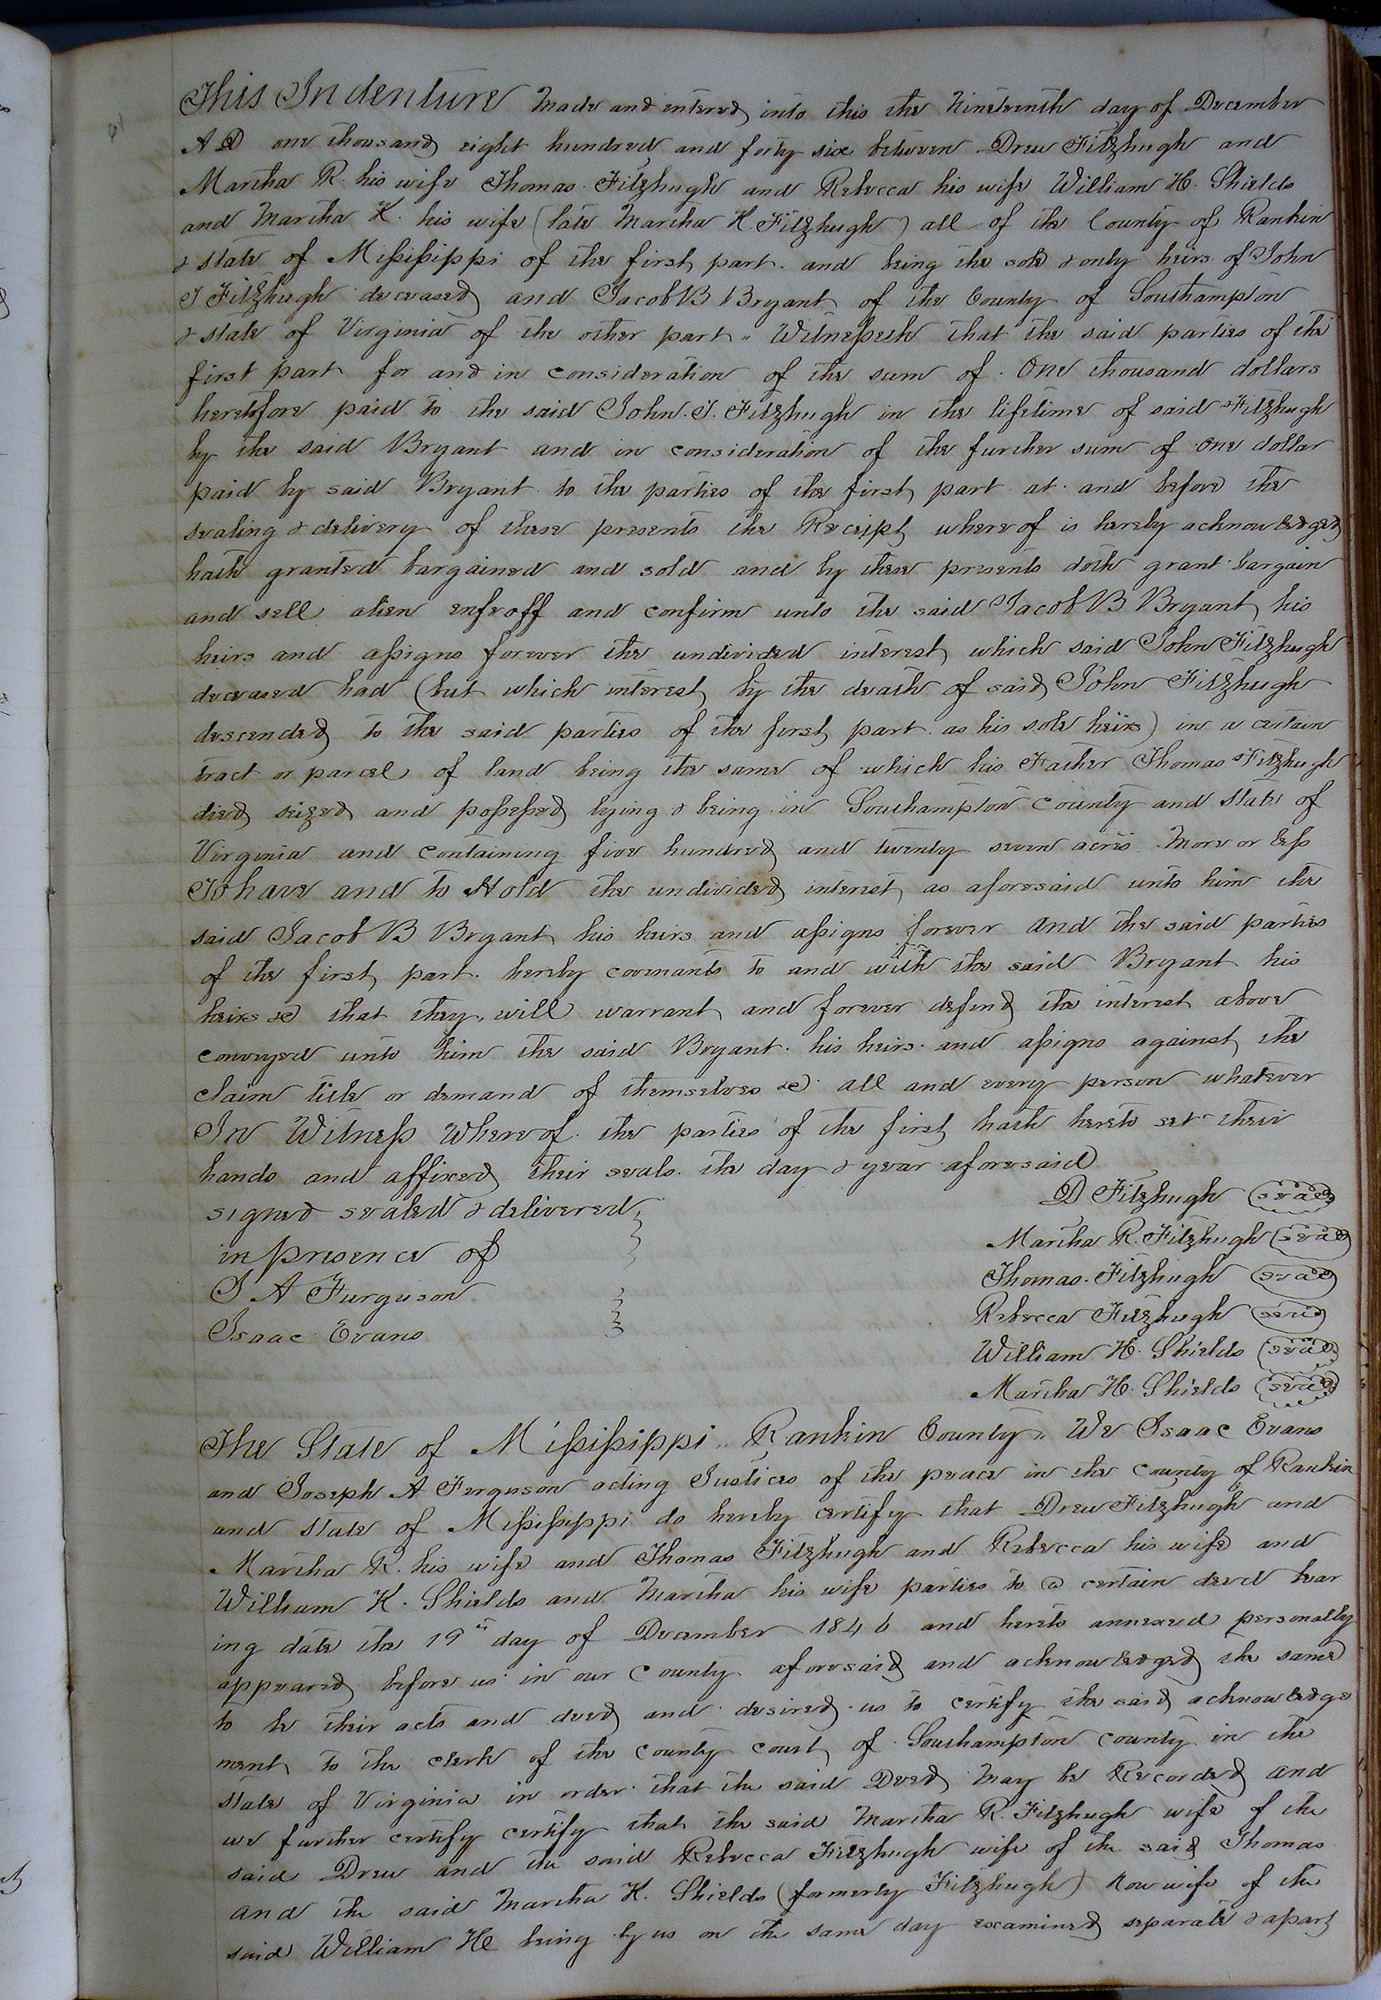 This Indenture Made and entered into this the Nineteenth day of December
A D one thousand eight hundred and forty six between Drew Fitzhugh and
Martha R. his wife Thomas Fitzhugh and Rebecca his wife William H. Shields
and Martha K. his wife (late Martha H. Fitzhugh) all of the County of Rankin
& state of Missisippi of the first part. and being the sole & only heirs of John
T Fitzhugh deceased and Jacob B Bryant of the County of Southampton
& state of Virginia of the other part " Witnesseth that the said parties of the
first part for and in consideration of the sum of One thousand dollars
heretofore paid to the said John. T. Fitzhugh in the lifetime of said Fitzhugh
by the said Bryant and in consideration of the further sum of one dollar
paid by said Bryant to the parties of the first part at and before the
sealing & delivery of these presents the Receipt whereof is hereby acknowledged
hath granted bargained and sold and by these presents doth grant bargain
and sell alien enfeoff and confirm unto the said Jacob B Bryant his
heirs and assigns forever the undivided interest which said John Fitzhugh
deceased had (but which interest by the death of said John Fitzhugh
descended to the said parties of the first part as his sole heirs) in a certain
tract or parcel of land being the same of which his Father Thomas Fitzhugh
died seized and possessed lying & being in Southampton County and State of
Virginia and Containing five hundred and twenty seven acres More or less
To have and to Hold the undivided interest as aforesaid unto him the
said Jacob B Bryant his heirs and assigns forever and the said parties
of the first part hereby covenants to and with the said Bryant his
heirs &c that they will warrant and forever defend the interest above
conveyed unto him the said Bryant his heirs and assigns against the
claim title or demand of themselves &c all and every person whatever
In Witness Whereof the parties of the first hath hereto set their
hands and affixed their seals the day & year aforesaid
D Fitzhugh seal
signed sealed & delivered
Martha R. Fitzhugh seal
in presence of
Thomas. Fitzhugh seal
J A Furguson
Rebecca Fitzhugh seal
Isaac Evans
William H. Shields seal
Martha H. Shields seal
The State of Missisippi " Rankin County " We Isaac Evans
and Joseph A Ferguson acting Justices of the peace in the County of Rankin
and State of Missisippi do hereby certify that Drew Fitzhugh and
Martha R. his wife and Thomas Fitzhugh and Rebecca his wife and
William K. Shields and Martha his wife parties to a certain deed bear
ing date the 19th day of December 1846 and hereto annexed personally
appeared before us in our County aforesaid and acknowledged the same
to be their acts and deed and desired us to certify the said acknowledge
ment to the clerk of the County Court of Southampton County in the
state of Virginia in order that the said Deed May be Recorded and
we further certify certify that the said Martha R. Fitzhugh wife of the
said Drew and the said Rebecca Fitzhugh wife of the said Thomas
and the said Martha K. Shields (formerly Fitzhugh) Now wife of the
said William H being by us on the same day examined separate & apart